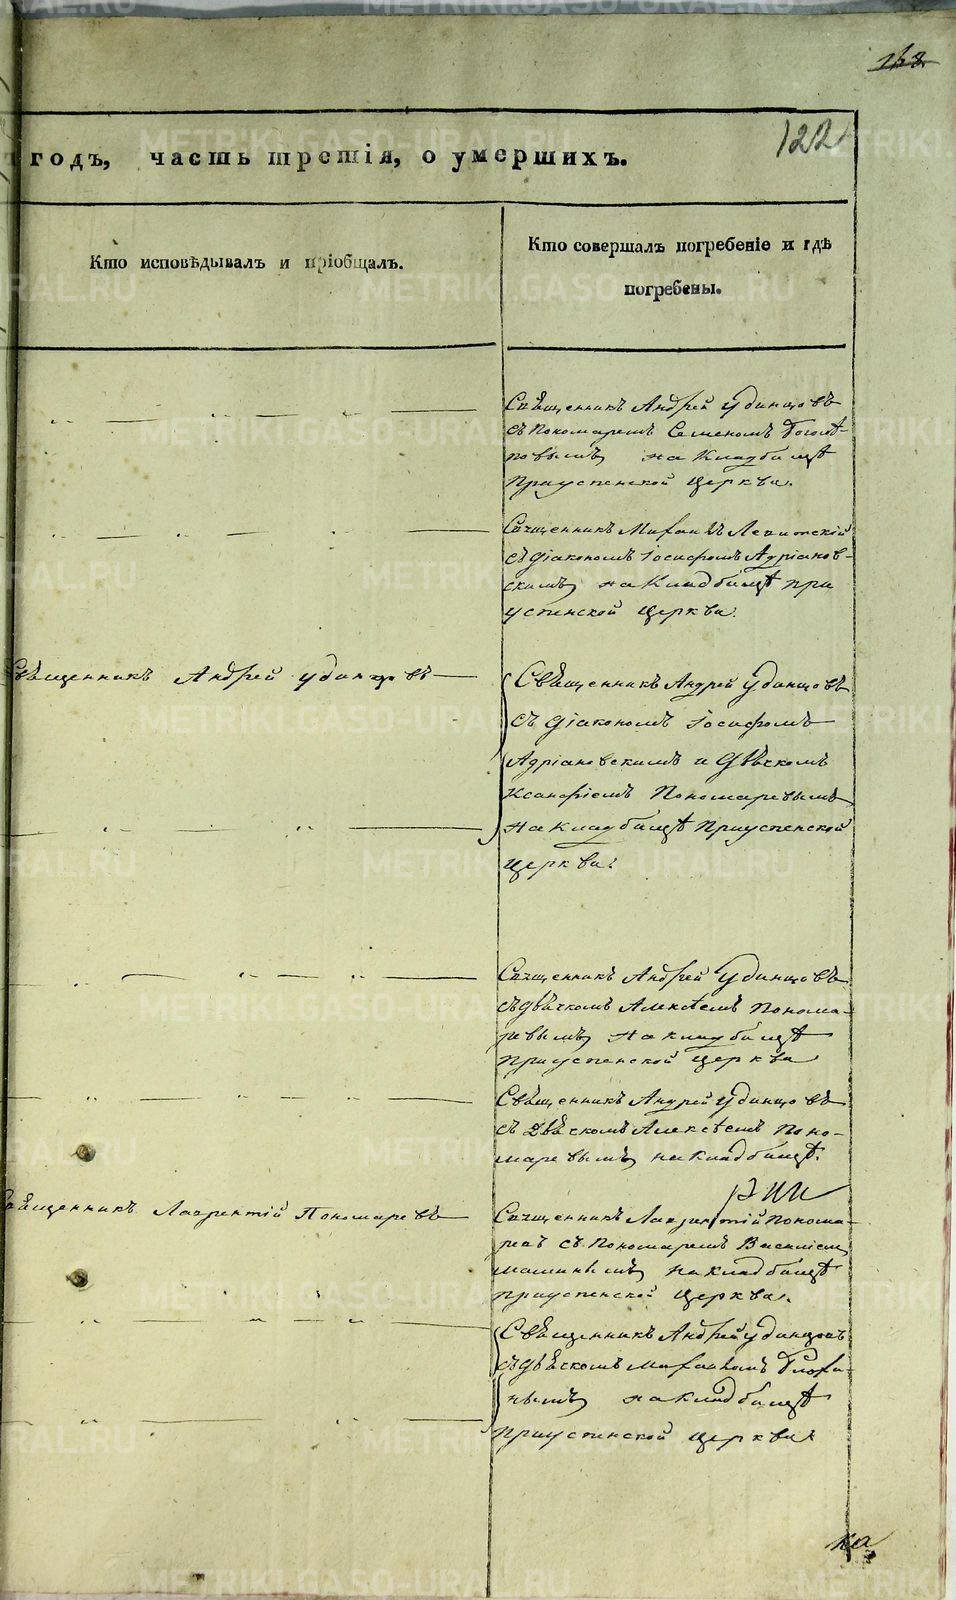 122
годъ, часть третія, о умершихъ.
Кто исповѣдывалъ и пріобщалъ.
Кто совершалъ погребеніе и гдѣ
погребены.
Священникъ Андрей Удинцовъ
съ Пономаремъ Семеномъ
на Кладбищѣ
Приуспенской церкви.
Священникъ Михаилъ Левитскій
съ Діакономъ Іосифомъ Адріанов-
скимъ на Кладбищѣ при
успенской церкви.
Священникъ Андрей Удинцовъ
Священникъ Андрей Удинцовъ
съ Діакономъ Іосифомъ
Адріановскимъ и Дьяскомъ
Ксанфіемъ Пономаревымъ
на Кладбищѣ Приуспенской
церкви.
Священникъ Андрей Удинцовъ
съ дьячкомъ Алексѣемъ Понома-
ревымъ на кладбищѣ
Приуспенской церкви
Священникъ Андрей Удинцовъ
съ Дьяскомъ Алексѣемъ Поно-
маревымъ на кладбищѣ.
Священникъ Лаврентій Пономаревъ
Священникъ Лаврентій Понома-
ревъ съ Пономаремъ Василіемъ
на кладбищѣ
приуспенской церкви.
Священникъ Андрей Удинцовъ
съ дьяскомъ Михаиломъ
на кладбищѣ
Приуспенской церкви
METRIKI.GASO-URAL.RU